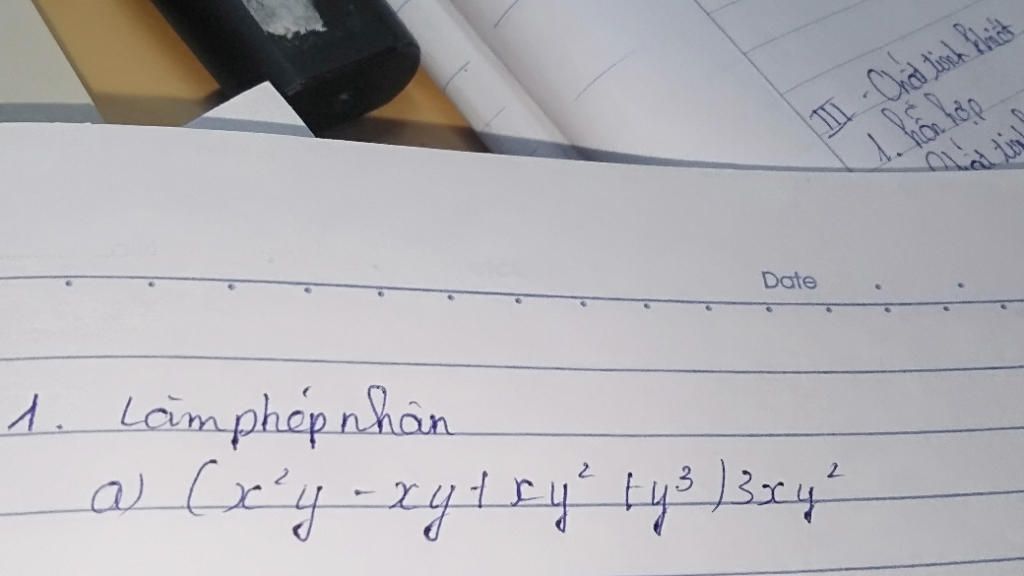 III - Chất tinh khiết
1. hỗn hợp
Chất tinh
Date
1. Làm phép nhân
a) (x²y - xy + xy² + y³)3xy²